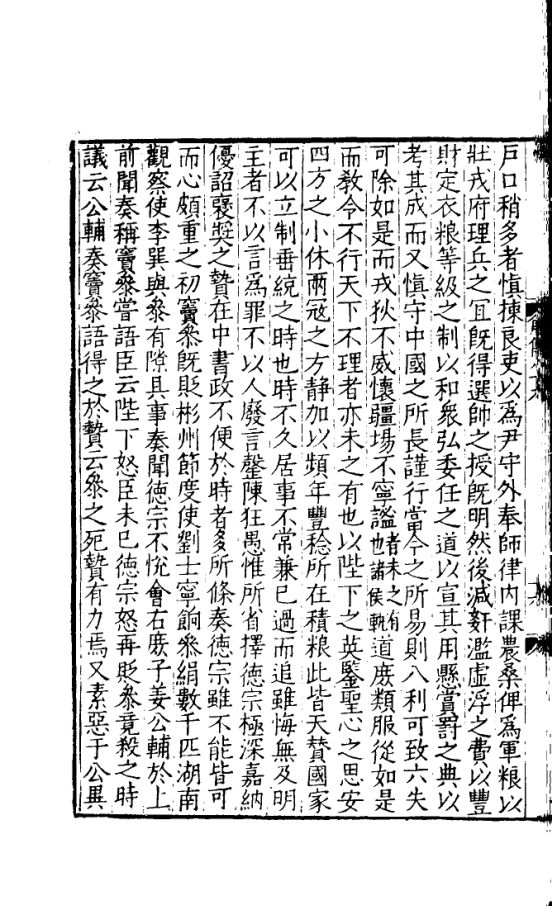 戶口稍多者慎揀良吏以爲尹守外奉師律內課農桑俾爲軍粮以
壯戎府理兵之宜旣得選帥之授旣明然後減姧濫虛浮之費以豐
財定衣粮等級之制以和衆弘委任之道以宣其用懸賞罰之典以
考其成而又慎守中國之所長謹行當今之所易則八利可致六失
可除如是而戎狄不威懷疆場不寧謐者未之有也諸侯軌道庶類服從如是
而敎令不行天下不理者亦未之有也以陛下之英鑒聖心之思安
四方之小休兩寇之方静加以頻年豐稔所在積粮此皆天贊國家
可以立制垂統之時也時不久居事不常兼已過而追雖悔無及明
主者不以言爲罪不以人廢言罄陳狂愚惟所省擇德宗極深嘉納
優詔襃奬之贄在中書政不便於時者多所條奏德宗雖不能皆可
而心頗重之初竇叅旣貶彬州節度使劉士寧餉叅絹數千匹湖南
觀察使李巽與叅有隙具事奏聞德宗不恱會右庶子姜公輔於上
前聞奏稱竇叅嘗語臣云陛下怒臣未已德宗怒再貶叅竟殺之時
議云公輔奏竇叅語得之於贄云叅之死贄有力焉又素惡于公異